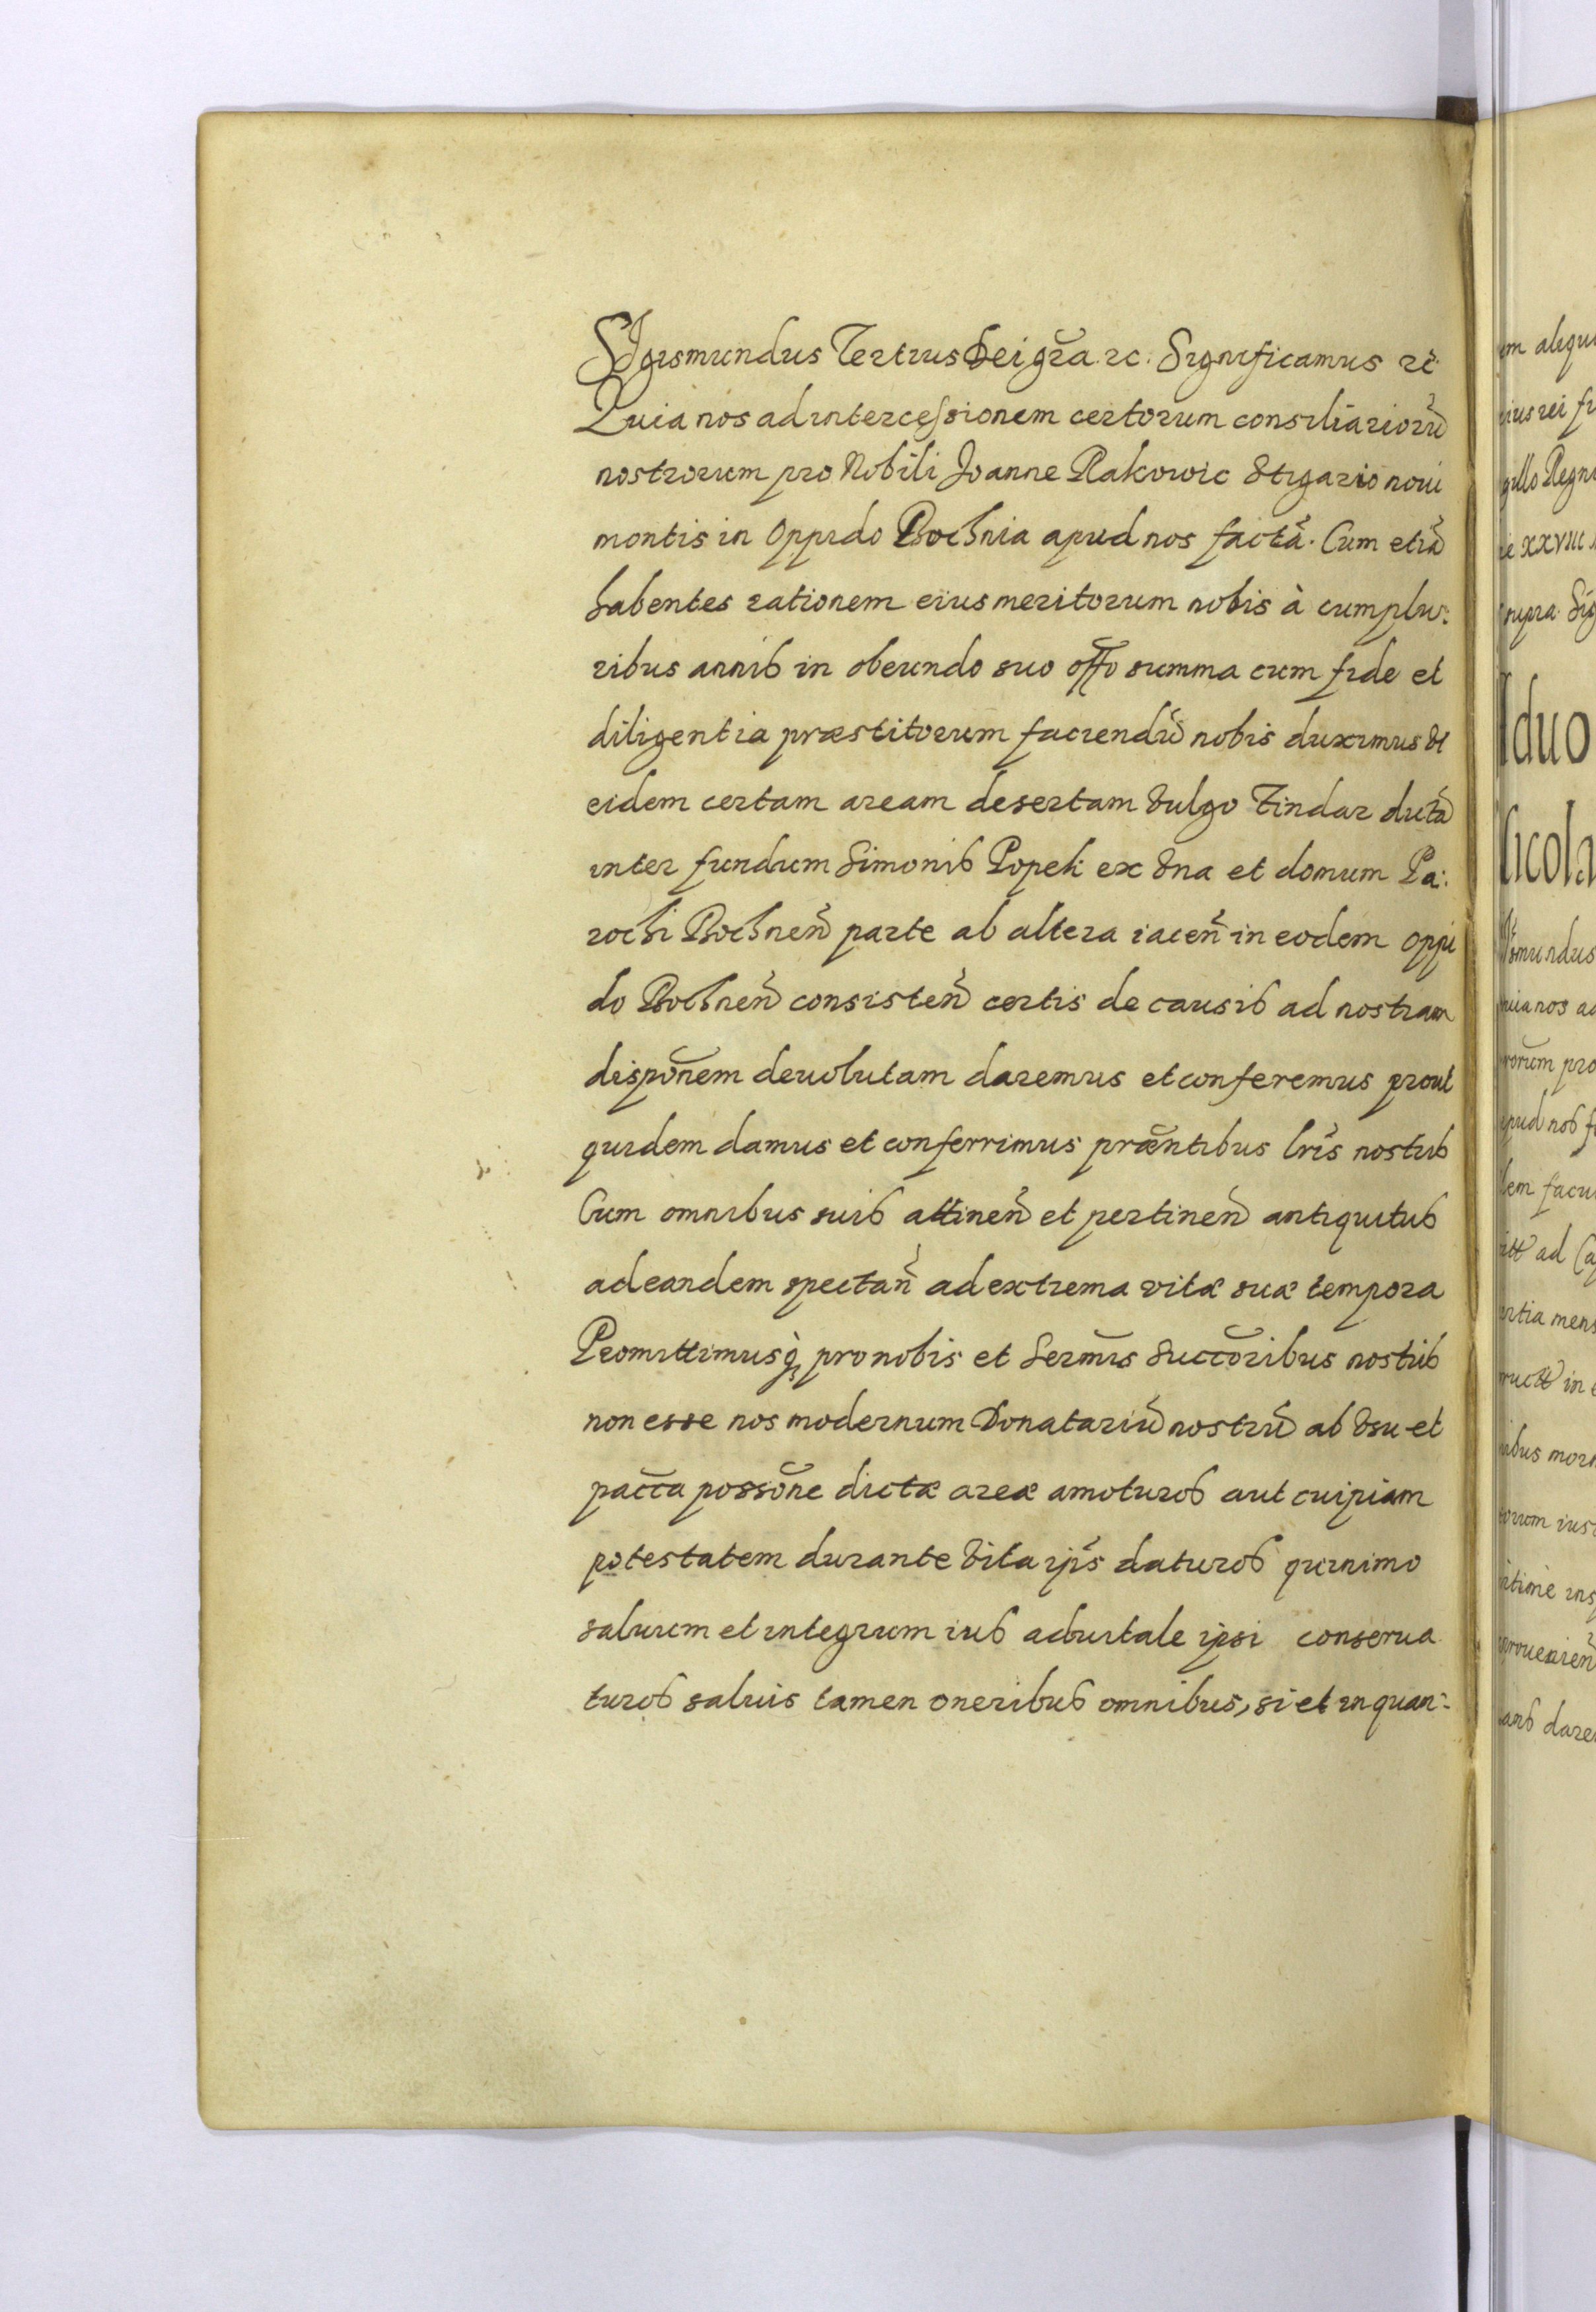 Sigismundus Tertius Dei grã. rc: Significamus rc̃.
Quia nos ad intercessionem certorum consiliariorũ
nostrorum pro Nobili Joanne Rakowic Stigario noui
montis in Oppido Bochnia apud nos factã. Cum etiã
habentes rationem eius meritorum nobis à cumplu:
ribus annis in obeundo suo offõ summa cum fide et
diligentia præstitorum faciendũ nobis duximus vt
eidem certam aream desertam vulgo Tindar dictã
inter fundum Simonis Popek ex vna et domum Pa:
rochi Bochneñ parte ab altera iaceñ in eodem oppi
do Bochneñ consisteñ certis de causis ad nostram
dispõnem deuolutam daremus et conferemus prout
quidem damus et conferrimus præntibus lris̃ nostris
Cum omnibus suis attineñ et pertineñ antiquitus
ad eandem spectañ ad extrema vitæ suæ tempora
Promittimusq̃ pro nobis et Serm̃is Succõribus nostris
non esse nos modernum Donatariũ nostrũ ab vsu et
pacc̃a possõne dictæ areæ amoturos aut cuipiam
potestatem durante vita ips̃ daturos quinimo
saluum et integrum ius aduitale ipsi conserua
turos saluis tamen oneribus omnibus, si et inquan:
em aliqu
ius rei
gillo Regni
ie XXVIII
supra. Sig
duo
icola
smundus
uia nos ad
rorum pro
apud nos
dem facu
ad Ca
ertia mens
in
ibus
orum ius
ians dare